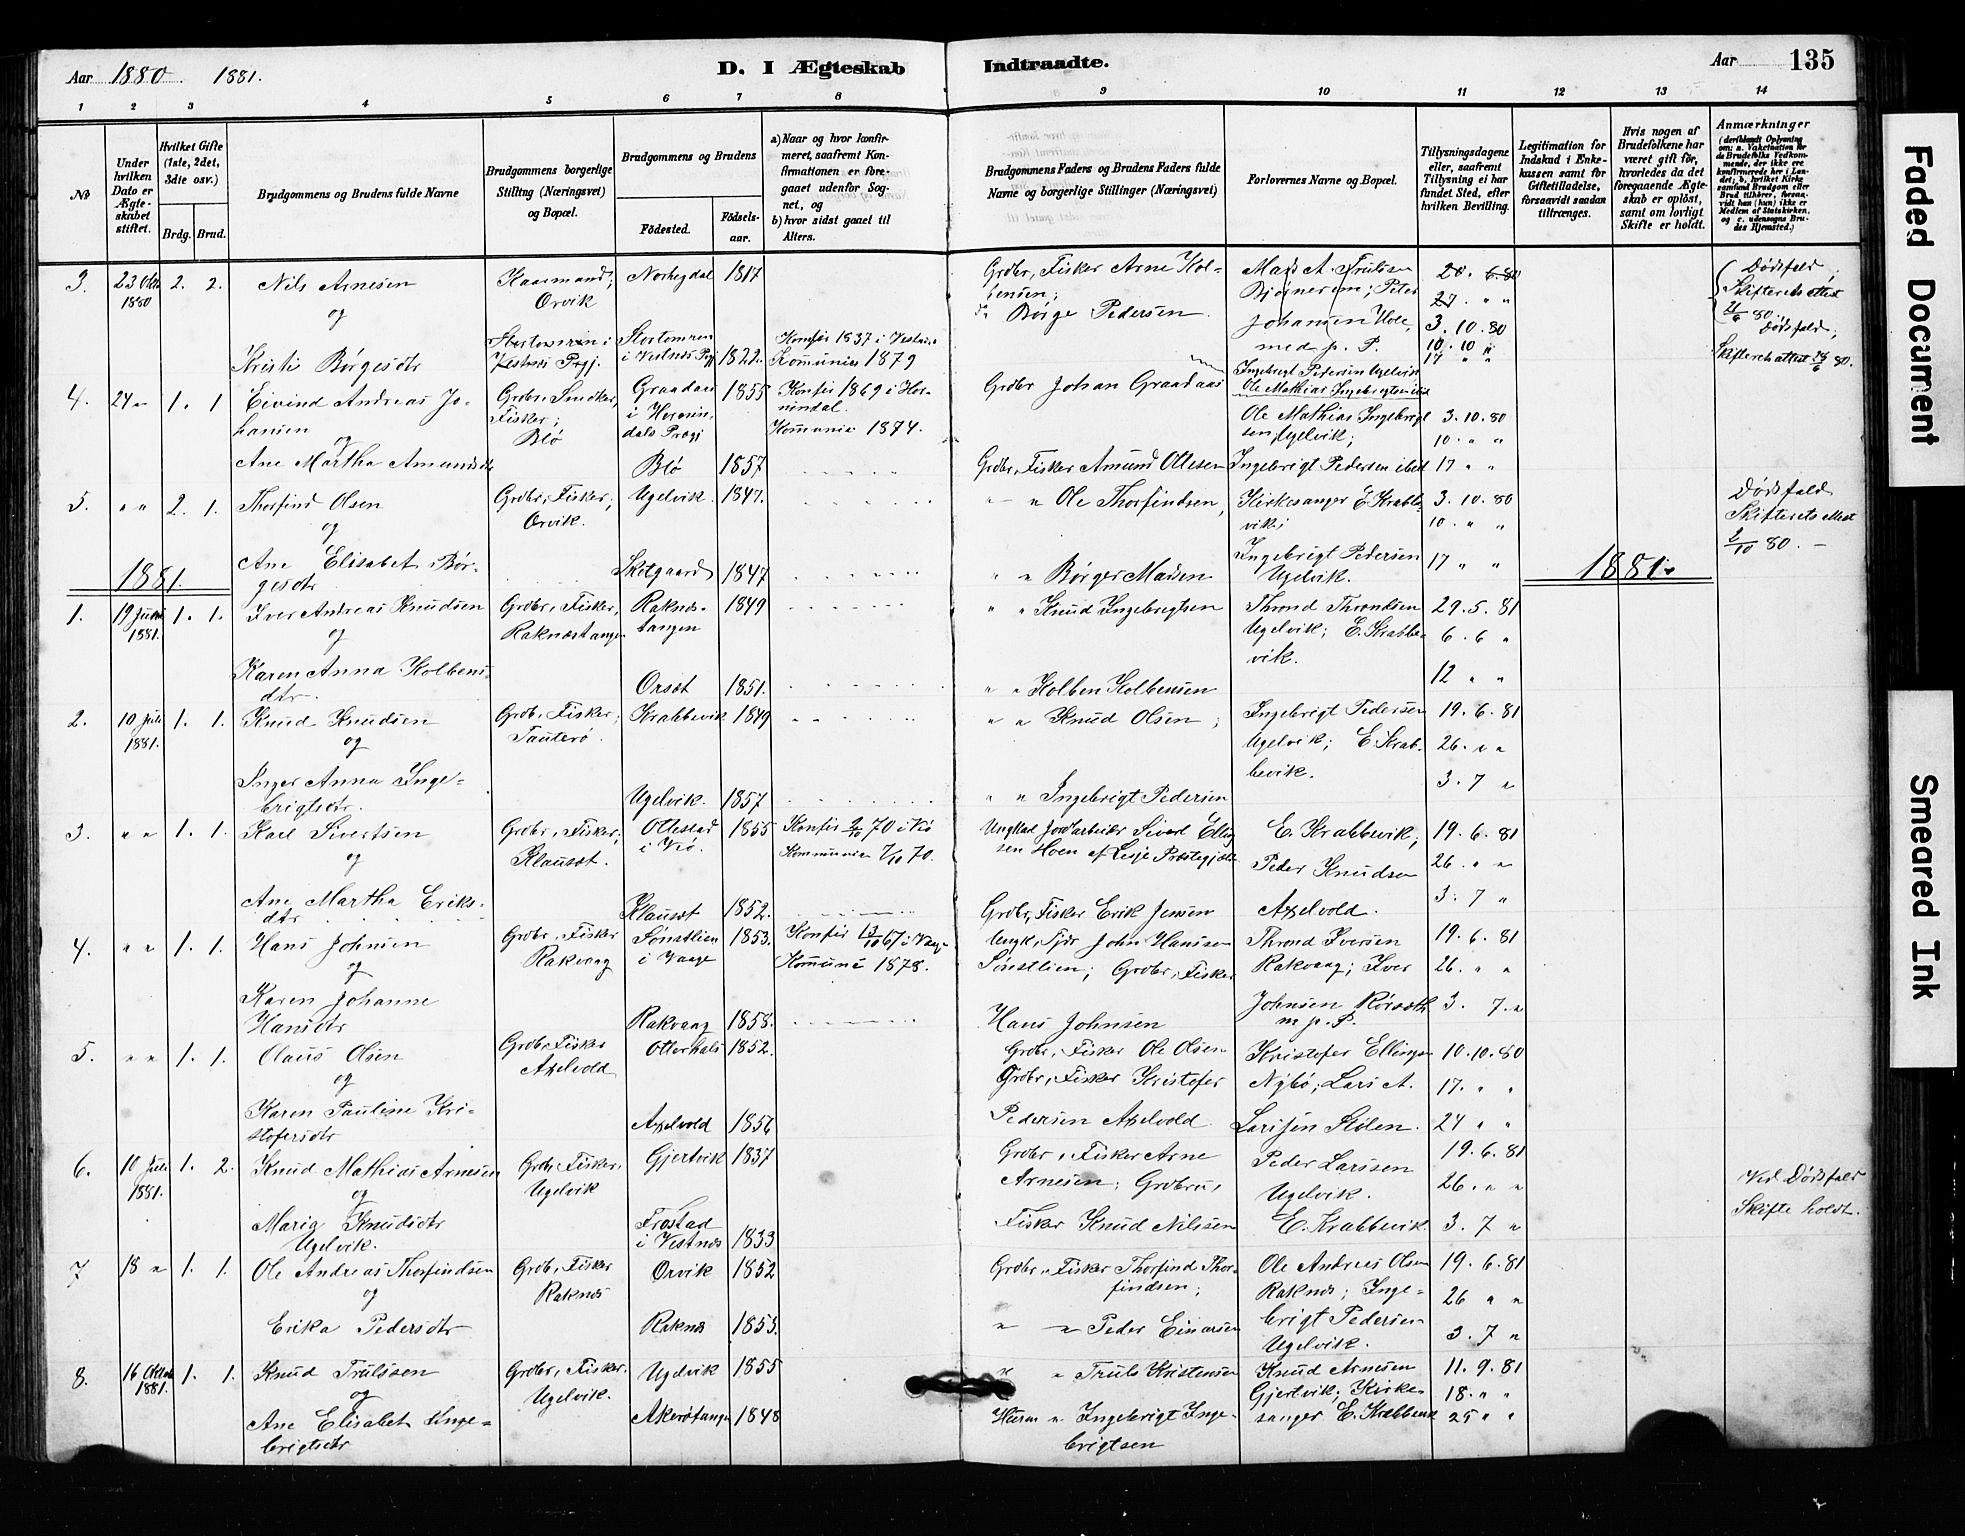 Aar 1880 1881.
D. I Ægteskab Indtraadte.
Aar 135
1 2 3 4 5 6 7 8 9 10 11 12 13 14
No
Under hvilken Dato er Ægteskabet stiftet.
Hvilket Gifte (1ste, 2det, 3die osv.)
Brdg. Brud.
Brudgommens og Brudens fulde Navne
Brudgommens borgerlige Stilling (Næringsvei) og Bopæl.
Brudgommens og Brudens
Födested. Födselsaar.
a) Naar og hvor konfirmeret, saafremt Konfirmationen er foregaaet udenfor Sognet, og
b) hvor sidst gaaet til Alters.
Brudgommens Faders og Brudens Faders fulde Navne og borgerlige Stillinger (Næringsvei)
Forlovernes Navne og Bopæl.
Tillysningsdagene eller, saafremt Tillysning ei har fundet Sted, efter hvilken Bevilling.
Legitimation for Indskud i Enkekassen samt for Giftetilladelse, forsaavidt saadan tiltrænges.
Hvis nogen af Brudefolkene har været gift för, hvorledes da det foregaaende Ægteskab er oplöst, samt om lovligt Skifte er holdt.
Anmærkninger
(deriblandt Oplysning om: a. Vakcination for de Brudefolks Vedkommende, der ikke ere konfirmerede her i Landet; b. hvilket Kirkesamfund Brudgom eller Brud tilhører, forsaavidt han (hun) ikke er Medlem af Statskirken, og c. udensogns Brudes Hjemsted.)
3. 23 Okt 1880 2. 2. Nils Arnesen Kaarmand; Orvik Norhegdal 1817 Grdbr, Fisker Arne Kolbensen; Mads A. Trulssen Bjørnerem; Peter 20. 6 80
27 " "
Dødsfald; Skifterets attest 21/6 80.
og
Kristi Børgesdtr Stortomren i Vestnes Prgj. Stortomren i Vestnes Prgj 1822. Konfir 1837 i Vestnes Kommunic 1879 Børge Pedersen Johansen Hole, med p. P. 3. 10. 80
10. 10 "
17 " "
Dødsfald; Skifterets attest 28/6 80.
4. 24 " 1. 1 Eivind Andreas Johansen Grdbr, Snedker, Fisker; Blø Graadaas i Hornindals Prgj 1855 Konfir 1869 i Hornindal. Kommunic 1874. Grdbr Johan Graadaas
Ingebrigt Pedersen Ugelvik
Ole Mathias Ingebrigtsen ibd
Ole Mathias Ingebrigtsen, Ugelvik; 3. 10. 80
10. " "
og
Ane Martha Amundsdtr Blø 1857 Grdbr, Fisker Amund Ottesen Ingebrigt Pedersen ibid 17 " "
5. " " 2. 1. Thorfind Olsen Grdbr, Fisker; Orvik. Ugelvik. 1847. " " Ole Thorfindsen, Kirkesanger E. Krabbevik; 3. 10. 80
10. " "
Dødsfald Skifterets attest 2/10 80. –
og
Ane Elisabet Børgesdtr Skotgaard 1847 " " Børger Madsen Ingebrigt Pedersen Ugelvik. 17 " "
1881. 1881.
1. 19 Juni 1881. 1. 1. Iver Andreas Knudsen Grdbr, Fisker, Raknestangen Raknestangen 1849 " " Knud Ingebrigtsen Thrond Throndsen Ugelvik; E. Krabbevik. 29. 5. 81
6. 6 "
12 " "
og
Karen Anna Kolbensdtr. Orset 1851. " " Kolben Kolbensen
2. 10 Juli 1881. 1. 1. Knud Knudsen Grdb, Fisker; Tauterø. Krabbevik 1849 " " Knud Olsen; Ingebrigt Pedersen Ugelvik; E. Krabbevik. 19. 6. 81
26. " "
3. 7 "
og
Inger Anna Ingebrigtsdtr. Ugelvik. 1857 " " Ingebrigt Pedersen
3. " " 1. 1. Karl Sivertsen Grdbr, Fisker; Klauset. Ottestad i Veø. 1855 Konfir 2/10 70 i Veø Kommunic 7/10 70. Ungkarl Jordarbeider Sivert Ellingsen Hoen af Lesje Præstegjeld E. Krabbevik; Peder Knudsen Axelvold. 19. 6. 81
26. " "
3. 7 "
og
Ane Martha Eriksdtr Klauset 1852. Grdbr, Fisker Erik Jensen
4. " " 1. 1. Hans Johnsen Grdbr, Fisker Rakvaag Sønstlien i Vaage 1853. Konfir 13/10 67 i Vaage Kommunic 1878. Ungk, Tjr John Hanssen Sønstlien; Grdbr, Fisker Thrond Iversen Rakvaag; Iver Johnsen Rørseth m. p. P. 19. 6. 81
26. " "
3. 7. "
og
Karen Johanne Hansdtr Rakvaag 1858. Hans Johnsen
5. " " 1. 1. Olaus Olsen Grdbr, Fisker Axelvold Otterhals 1852. Grdbr, Fisker Ole Olsen Kristofer Ellingsen Nybø; Lars A. Larssen Stølen. 10. 10. 80
17. " "
24 " "
og
Karen Pauline Kristofersdtr Axelvold 1856 Grdbr, Fisker Kristofer Pedersen Axelvold
6. 10 Juli 1881. 1. 2. Knud Mathias Arnesen Grdbr, Fisker, Ugelvik Gjertvik 1837 Grdbr, Fisker Arne Arnesen; Grdbru, Peder Larssen Ugelvik. E. Krabbevik 19. 6. 81
26. " "
3. 7 "
Ved Dødsfald Skifte holdt.
og
Marig Knudsdtr Ugelvik. Frostad i Vestnes 1833 Fisker Knud Nilssen
7 18 " 1. 1. Ole Andreas Thorfindsen Grdb, Fisker Raknes Orvik 1852 Grdbr, Fisker Thorfind Thorfindsen; Ole Andreas Olsen Raknes; Ingebrigt Pedersen Ugelvik. 19. 6. 81
26 " "
3. 7 "
og
Erika Pedersdtr Raknes 1853. " " Peder Einarsen
8. 16 Oktob 1881. 1. 1. Knud Trulssen Grdbr, Fisker. Ugelvik. Ugelvik 1855 " " Truls Kristensen Knud Arnesen Gjertvik; Kirkesanger E. Krabbevik 11. 9. 81
18. " "
25 " "
og
Ane Elisabet Ingebrigtsdtr Akerøtangen 1848 Husm " Ingebrigt Ingebrigtsen
Faded Document
Smeared Ink